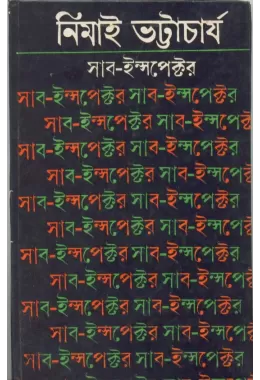 নিমাই ভট্টাচার্য
সাব-ইন্সপেক্টর
সাব-ইন্সপেক্টর সাব-ইন্সপেক্টর
সাব-ইন্সপেক্টর সাব-ইন্সপেক্ট
সাব-ইন্সপেক্টর সাব-ইন্সপেক্টর
সাব-ইন্সপেক্টর সাব-ইন্সপেক্ট
সাব-ইন্সপেক্টর সাব-ইন্সপেক্টর
সাব-ইন্সপেক্টর সাব-ইন্সপেক্ট
সাব-ইন্সপেক্টর সাব-ইন্সপেক্টর
সাব-ইন্সপেক্টর সাব-ইন্সপেক্ট
সাব-ইন্সপেক্টর সাব-ইন্সপেক্টর
সাব-ইন্সপেক্টর সাব-ইন্সপেক্ট
সাব-ইন্সপেক্টর সাব-ইন্সপেক্টর